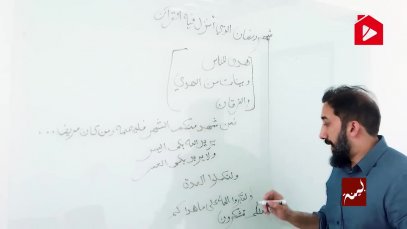 شهر رمضان الذي أنزل فيه القرآن
هدى للناس
وبينات من الهدى
والفرقان
فمن شهد منكم الشهر فليصمه ومن كان مريضا ...
يريد الله بكم اليسر
ولا يريد بكم العسر
ولتكملوا العدة
ولتكبروا الله على ما هداكم
تشكرون